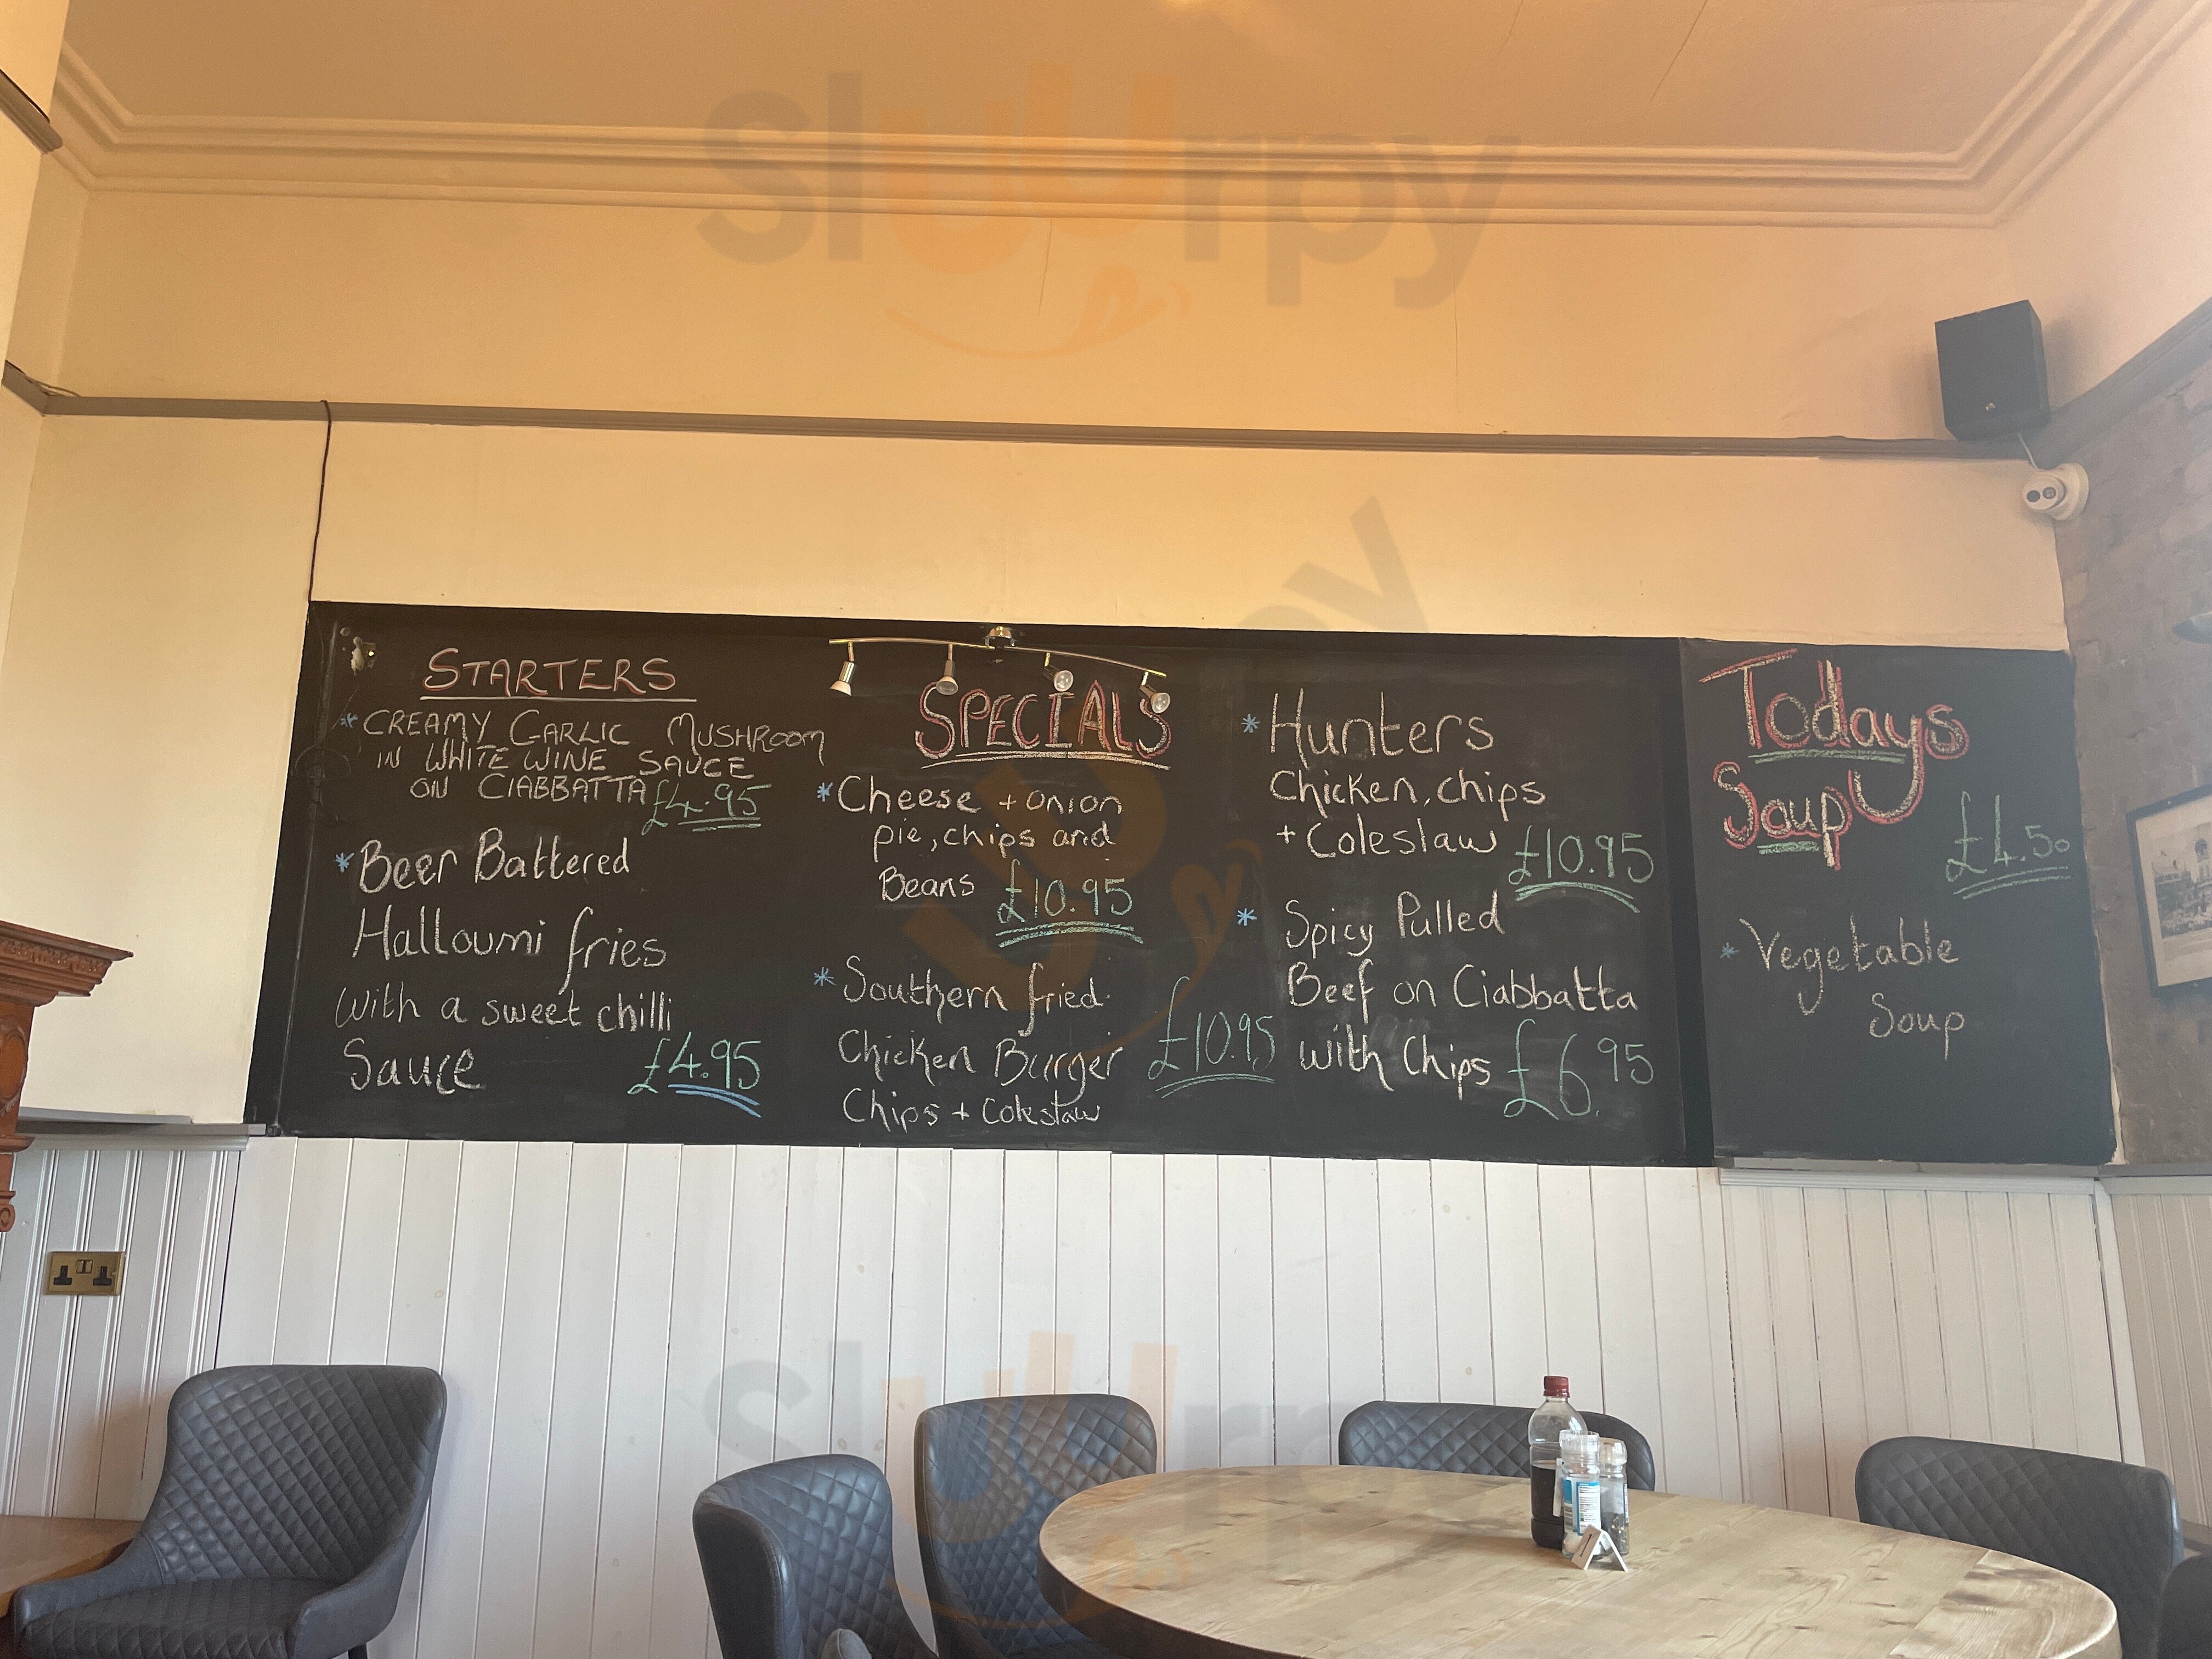 Sluurpy
STARTERS
* CREAMY GARLIC MUSHROOM
IN WHITE WINE SAUCE
ON CIABBATTA £4.95
* Beer Battered
Halloumi fries
with a sweet chilli
Sauce £4.95
SPECIALS
* Cheese + onion
pie, chips and
Beans £10.95
* Southern fried
Chicken Burger £10.95
Chips + Coleslaw
* Hunters
Chicken, chips
+ Coleslaw £10.95
* Spicy Pulled
Beef on Ciabbatta
with Chips £6.95
Todays
Soup £4.50
* Vegetable
Soup